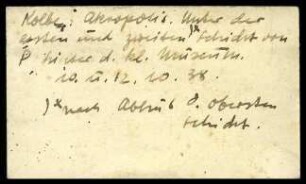 Kolbe: Akropolis. Unter der
ersten und zweiten )* Schicht von
hinter d. kl. Museum.
10. u. 12. 10. 38.
)* nach Abhub d. obersten
Schicht.